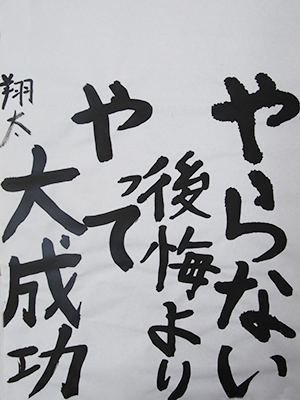 やらない
後悔より
やって
大成功
翔太